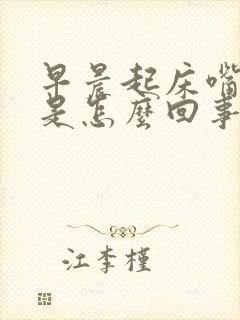 早晨起床嘴
是怎麽回事
江李槿